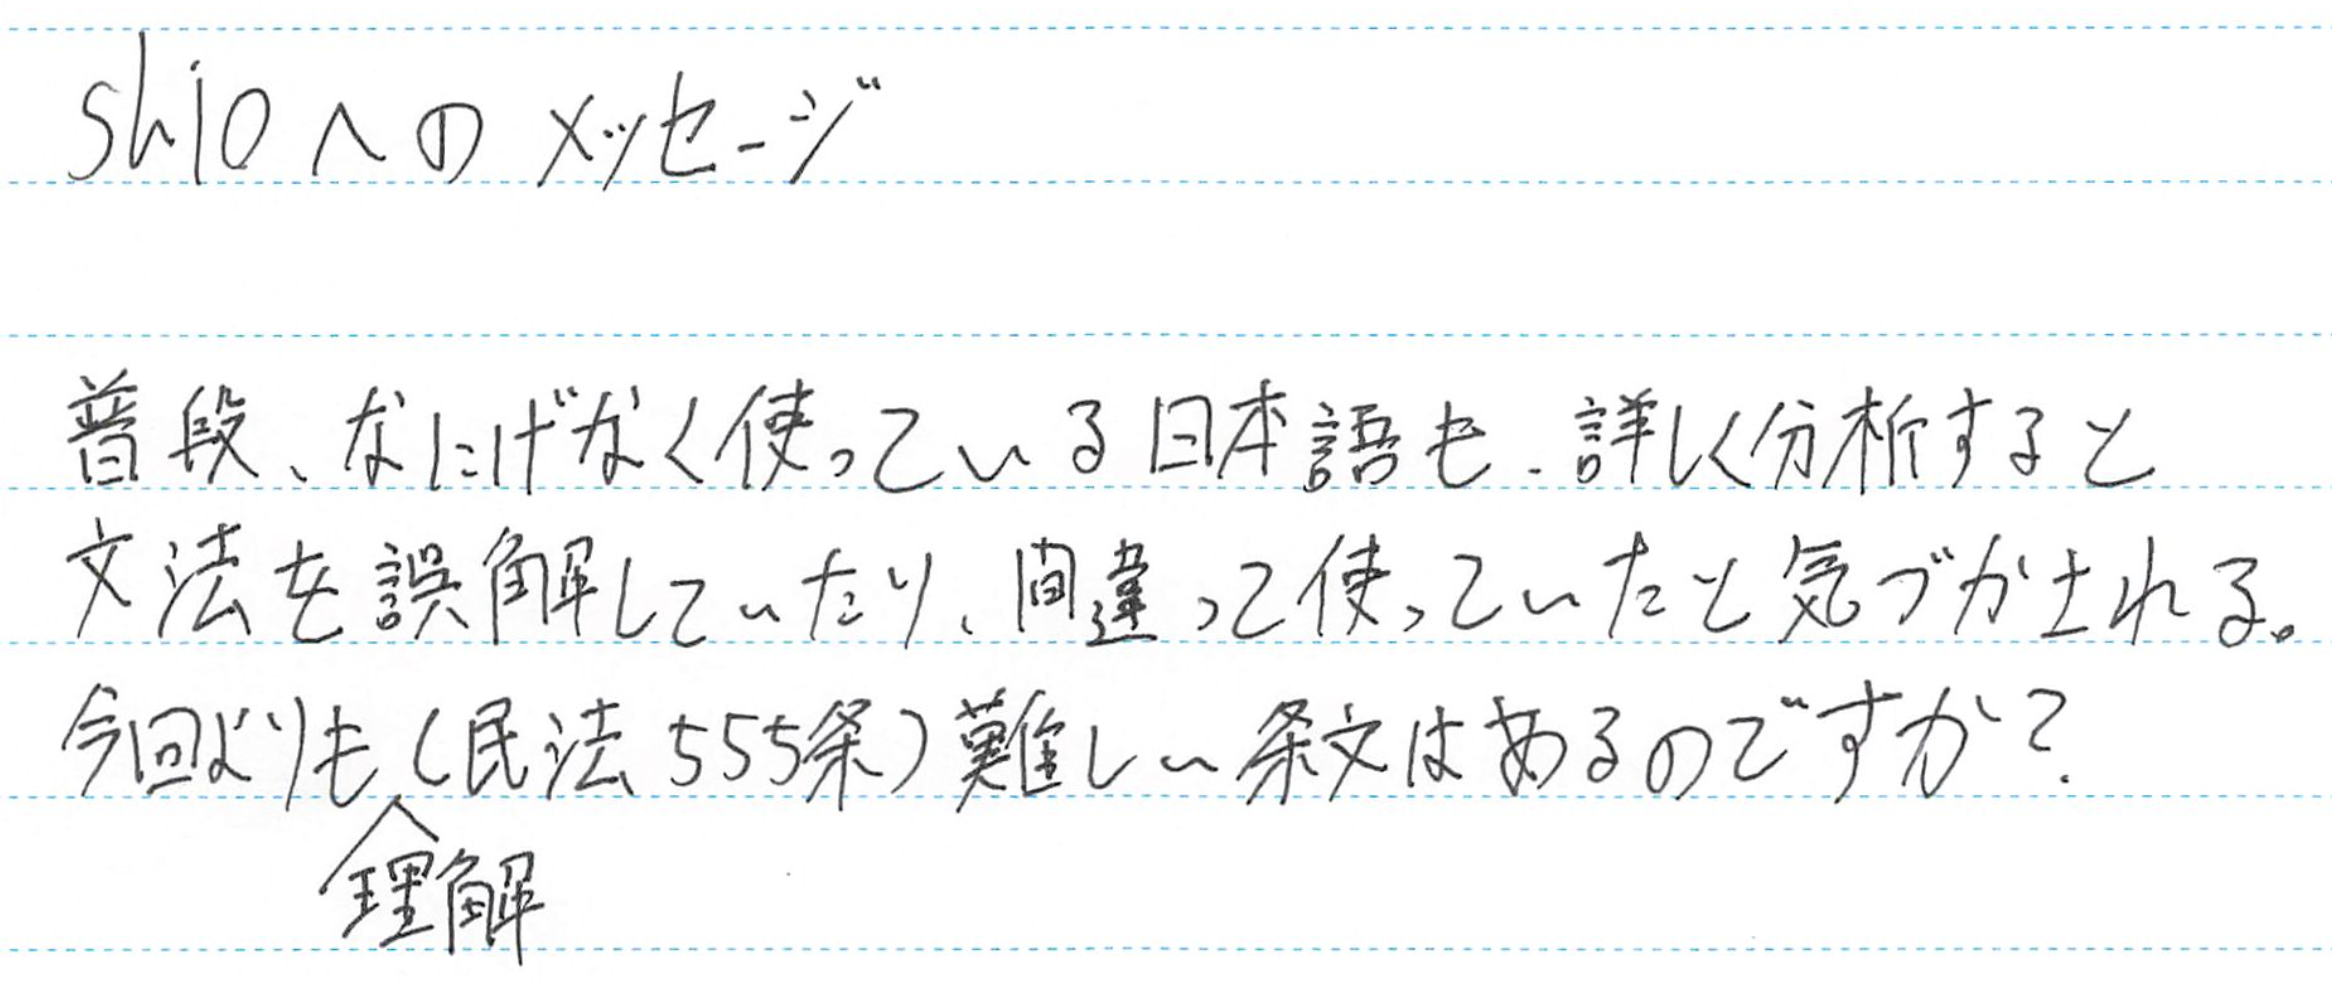 shioへのメッセージ
普段、なにげなく使っている日本語も、詳しく分析すると
文法を誤解していたり、間違って使っていたと気づかされる。
今回よりも(民法555条)難しい条文はあるのですか?
理解